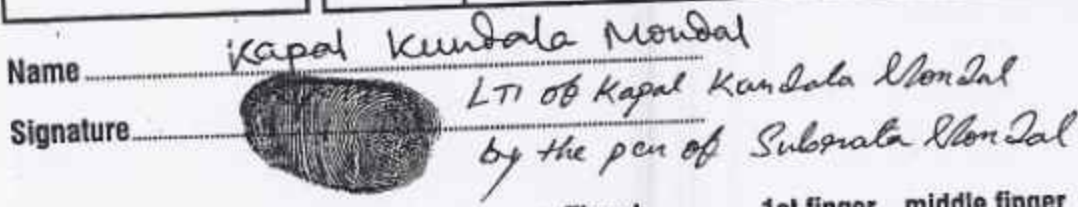 Name Kapal Kundala Mondal
LTI of Kapal Kundala Mondal
Signature
by the pen of Subrata Mondal
1st finger middle finger